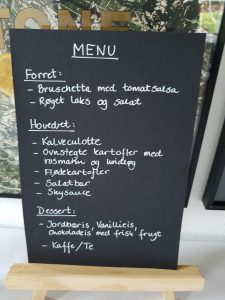 MENU
Forret:
- Bruschetta med tomatsalsa
- Røget laks og salat
Hovedret:
- Kalveculotte
- Ovnstegte kartofler med
rosmarin og hvidløg
- Flødekartofler
- Salatbar
- Skysauce
Dessert:
- Jordbæris, Vanilleis,
chokoladeis med frisk frugt
- Kaffe/Te